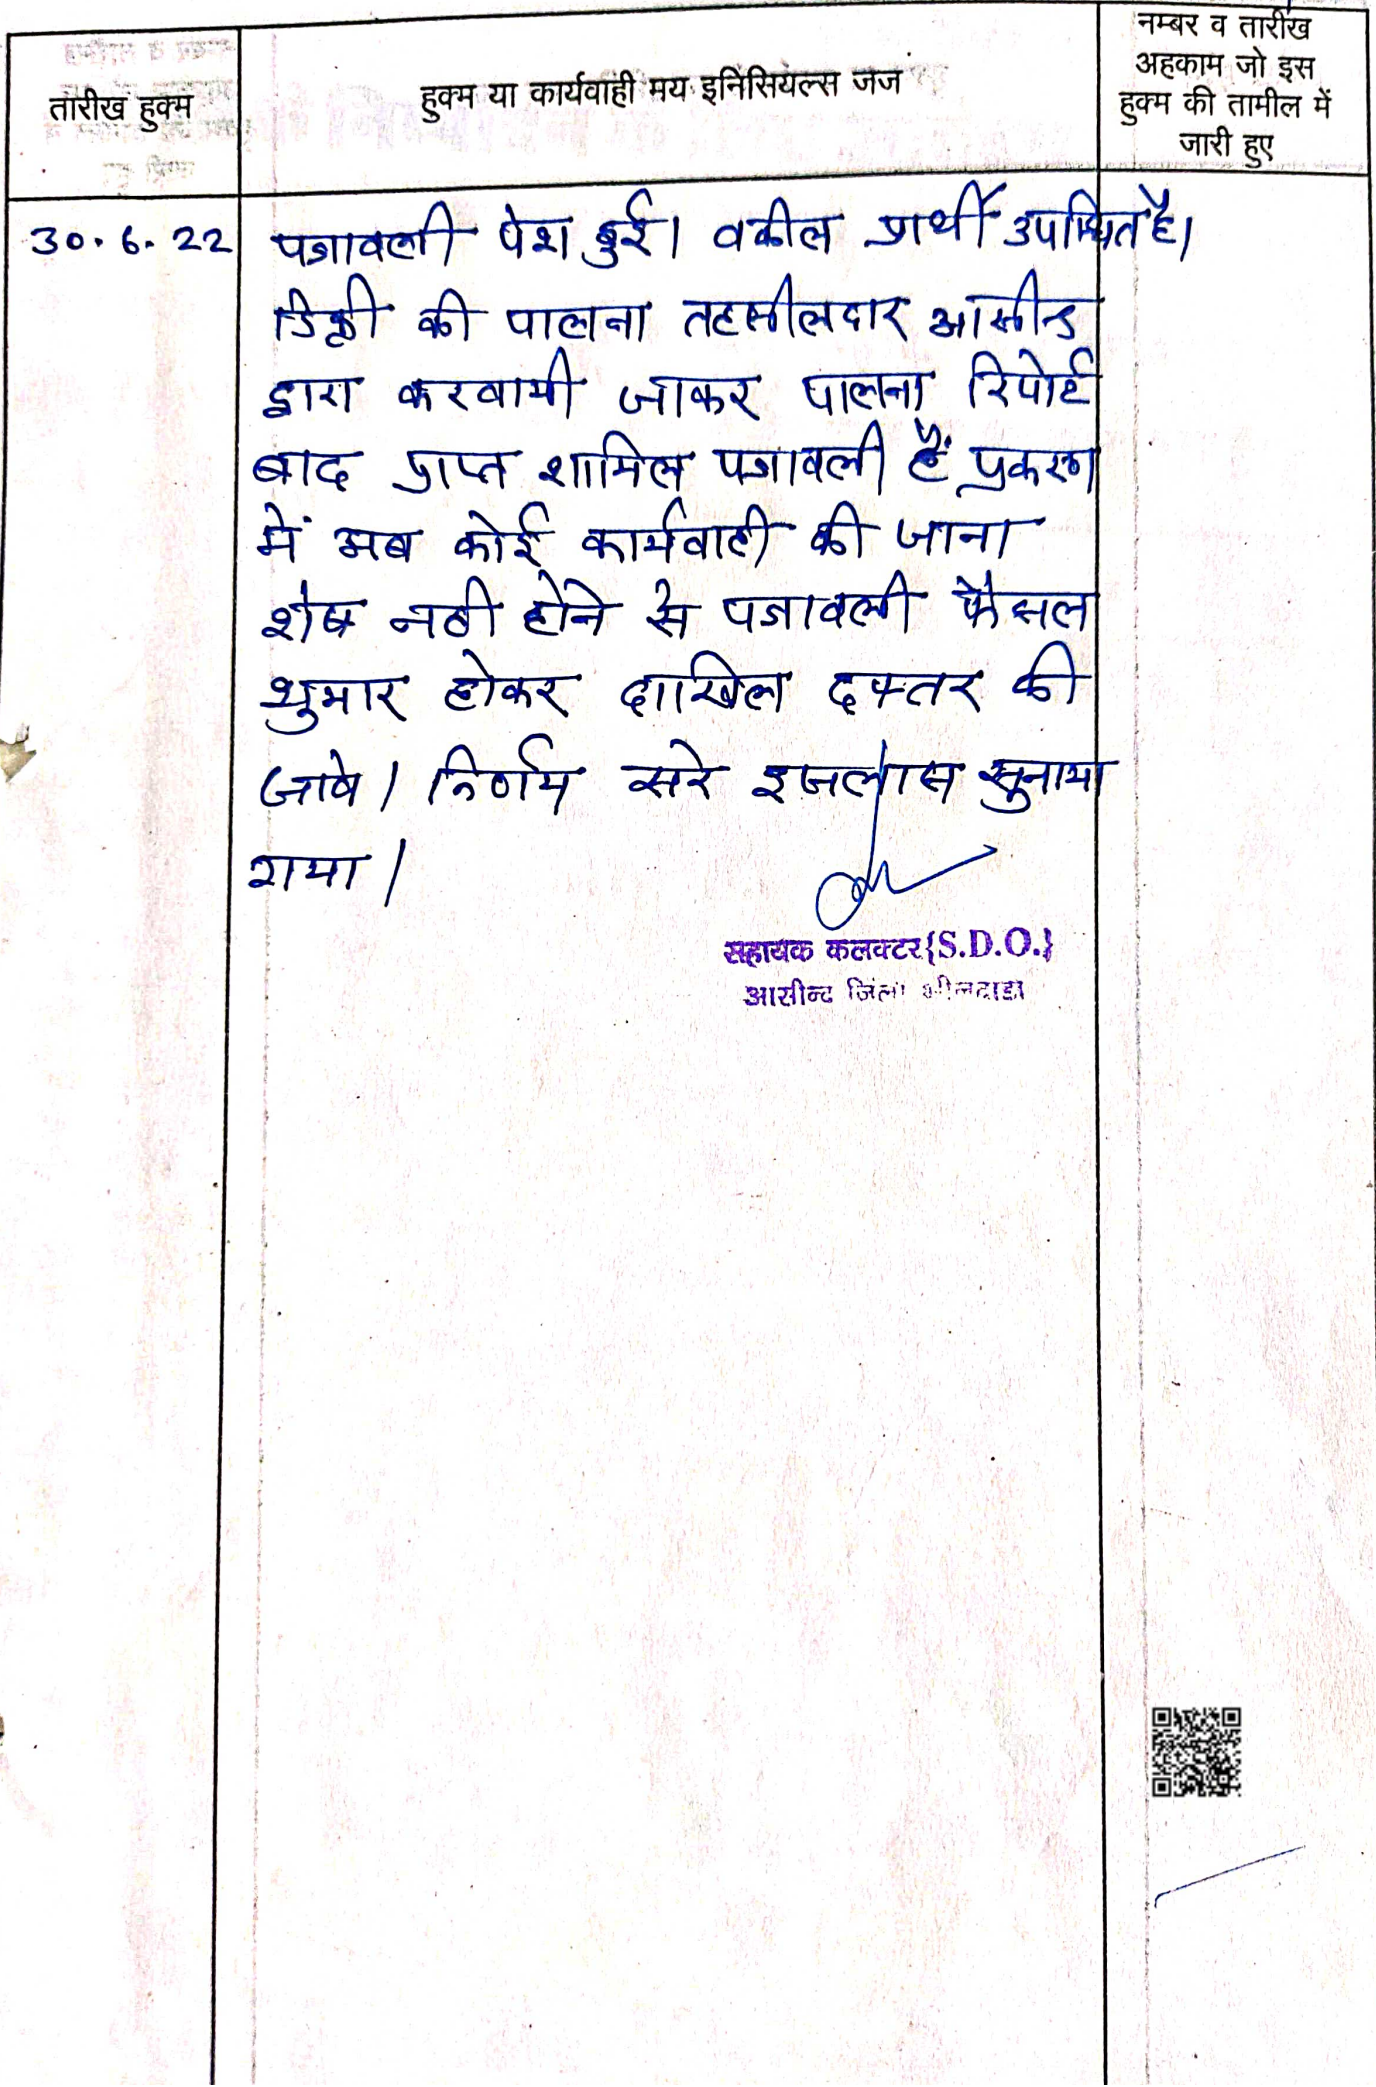 तारीख हुक्म
हुक्म या कार्यवाही मय इनिसियल्स जज
नम्बर व तारीख
अहकाम जो इस
हुक्म की तामील में
जारी हुए
30.6.22
पत्रावली पेश हुई। वकील प्रार्थी उपस्थित है।
डिक्री की पालना तहसीलदार आसीन्द
द्वारा करवायी जाकर पालना रिपोर्ट
बाद प्राप्त शामिल पत्रावली हैं प्रकरण
में अब कोई कार्यवाही की जाना
शेष नही होने से पत्रावली फैसल
शुमार होकर दाखिल दफ्तर की
जावे। निर्णय सरे इजलास सुनाया
गया।
सहायक कलक्टर{S.D.O.}
आसीन्द जिला भीलवाडा